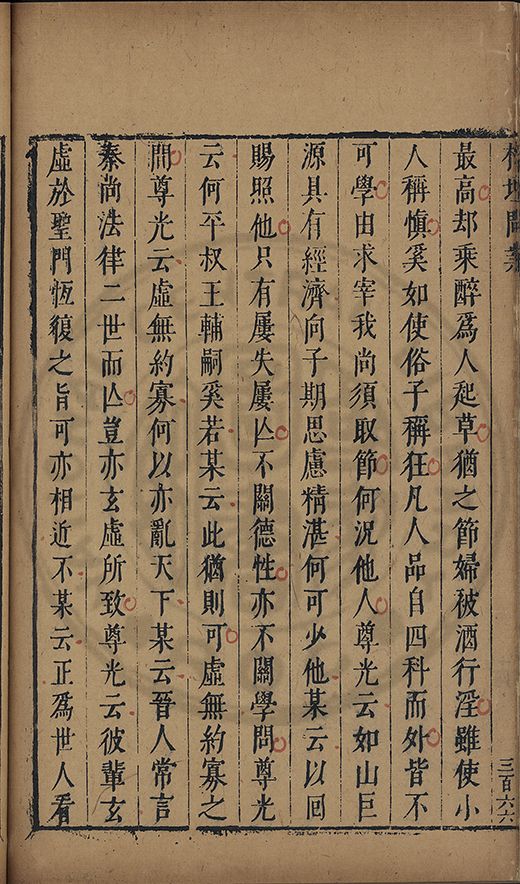 榕壇問業
三百六六
最高却乘醉為人起草猶之節婦被酒行淫雖使小
人稱慎奚如使俗子稱狂凡人品自四科而外皆不
可學由求宰我尚須取節何況他人尊光云如山巨
源具有經濟向子期思慮精湛何可少他某云以回
賜照他只有屢失屢亾不關德性亦不關學問尊光
云何平叔王輔嗣奚若某云此猶則可虛無約寡之
間尊光云虛無約寡何以亦亂天下某云晉人常言
秦尚法律二世而亾豈亦玄虛所致尊光云彼輩玄
虛於聖門恆復之旨可亦相近不某云正為世人看